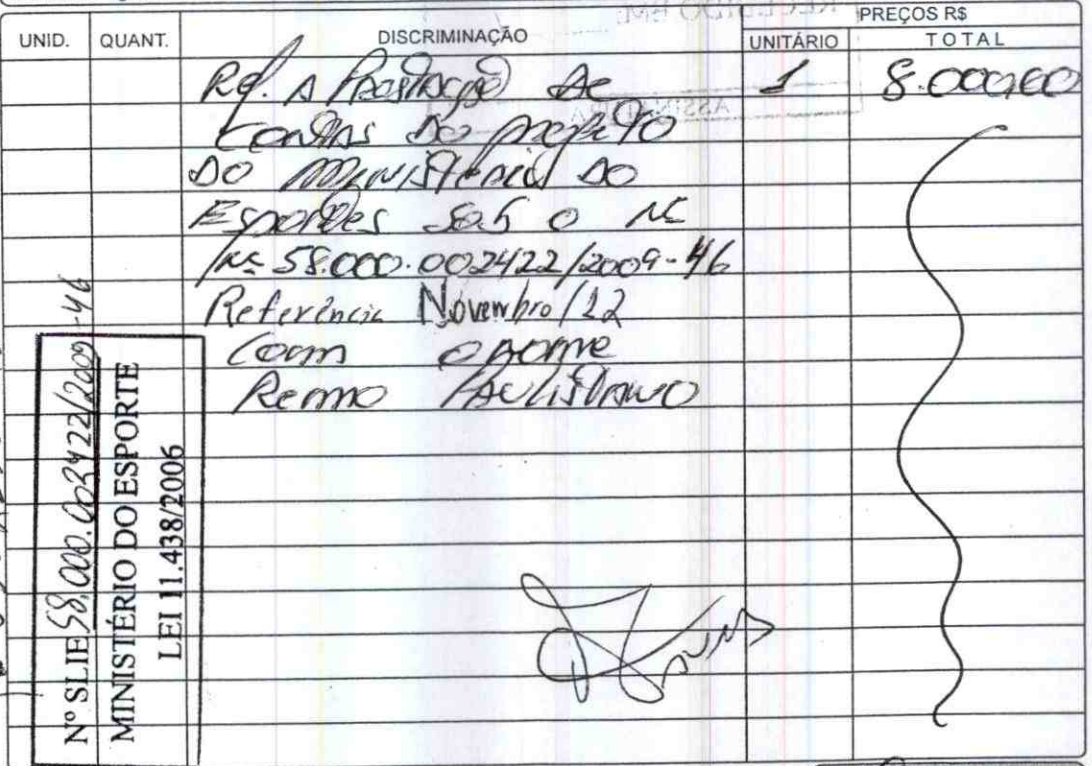 PREÇOS R$
UNID. QUANT. DISCRIMINAÇÃO UNITÁRIO TOTAL
Ref. A Prestação de 1 8.000,00
Contas do projeto
DO Ministério do
Esportes sob o Nº
Nº 58.000.002422/2009-46
Referência Novembro/12
Com o nome
Remo Paulistano
Nº SLIE 58.000.002422/2009-46
MINISTÉRIO DO ESPORTE
LEI 11.438/2006